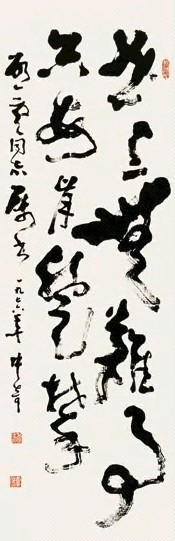 世上無難事
只要肯登攀
同志屬書 一九七六年